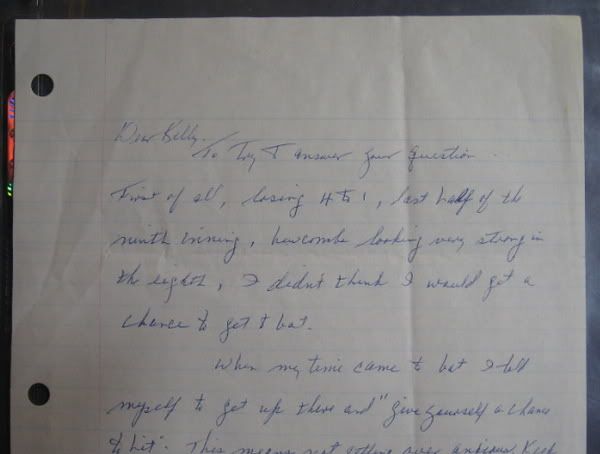 Dear Kelly.
To Try T answer your question.
First of all, losing 4 to 1, last half of the
ninth inning, Newcombe looking very strong in
the eighth, I didn't think I would get a
chance to get t bat.
When my time came to bat I told
myself to get up there and "give yourself a chance
to hit". This means not getting over anxious. Keep